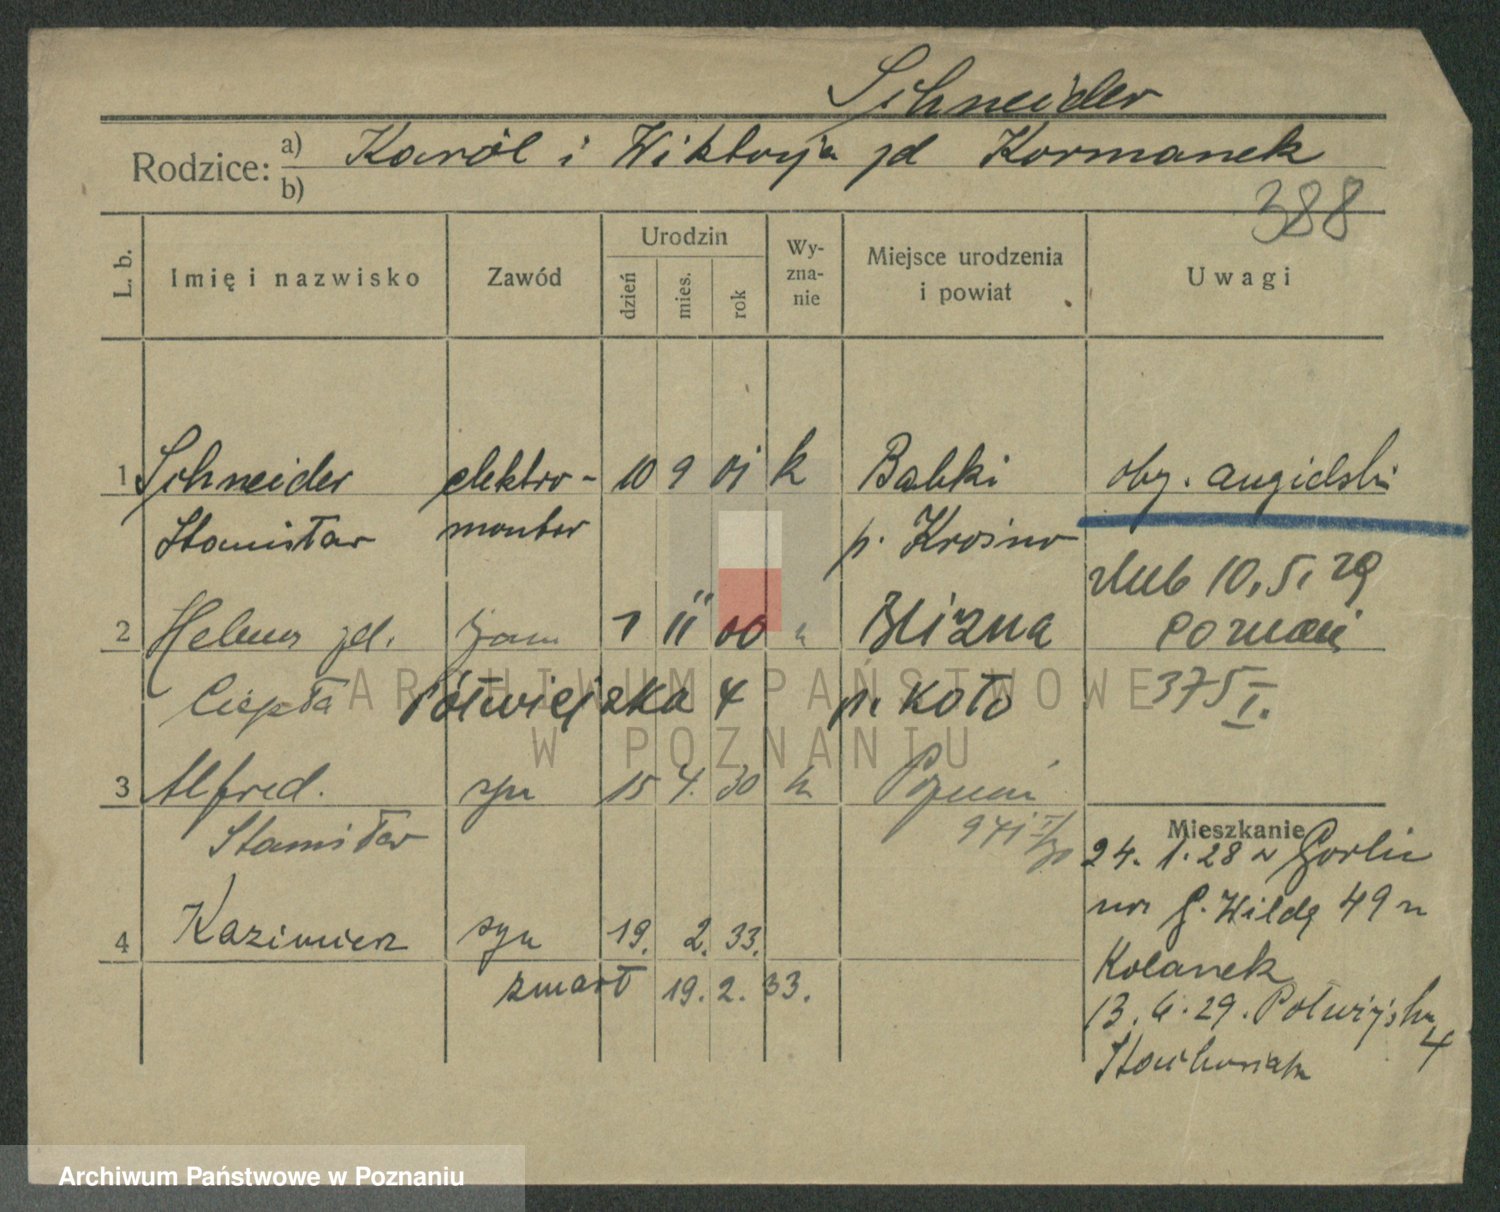 Schneider
Rodzice: a) Karól i Wiktorja zd Kormanek
b)
388
L. b. Imię i nazwisko Zawód Urodzin dzień mies. rok Wyzna-nie Miejsce urodzenia i powiat Uwagi
1 Schneider elektro- 10 9 01 k Babki oby. angielski
Stanisław monter p. Krosno
ślub 10.5.29
2 Helena zd. żona 1 11 00 Blizna Poznań
Ciepła Półwiejska 4 p. Koło 375 I.
3 Alfred syn 15 4. 30 k Poznań
Stanisław 941 I/30
Mieszkanie
24. 1. 28 Gorlin
G. Wildą 49
4 Kazimierz syn 19. 2. 33.
Kolanek
zmarł 19. 2. 33.
13. 6. 29. Półwiejska 4
Stachowiak
ARCHIWUM PAŃSTWOWE
W POZNANIU
Archiwum Państwowe w Poznaniu